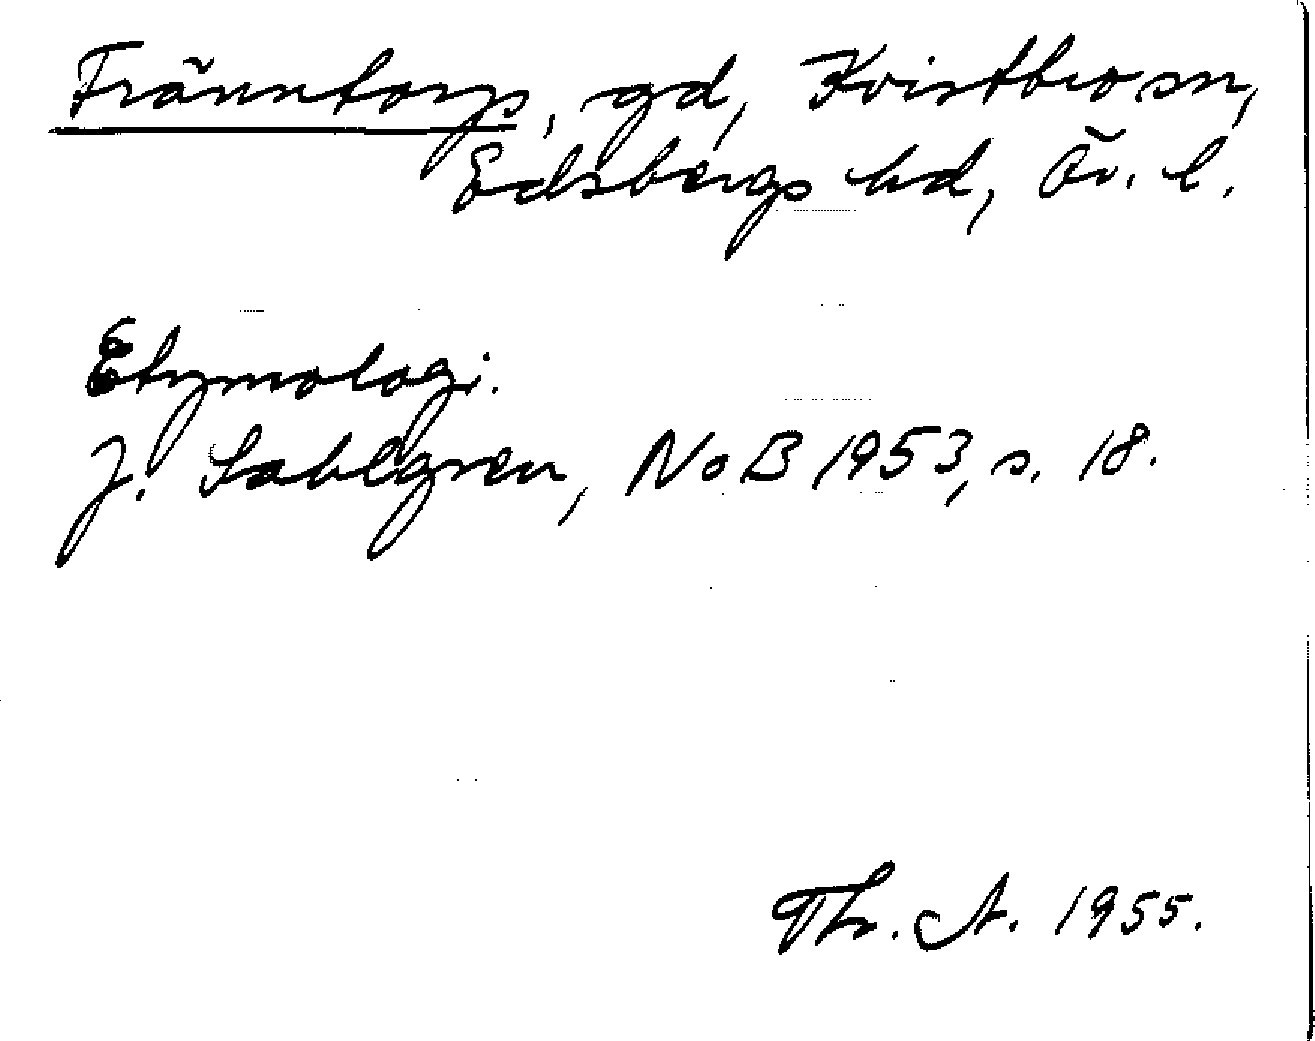 Fränntorp, gd, Kvistbro sn,
Edsbergs hd, Ör. l.
Etymologi.
J. Sahlgren, NoB 1953, s. 18.
Th. A. 1955.